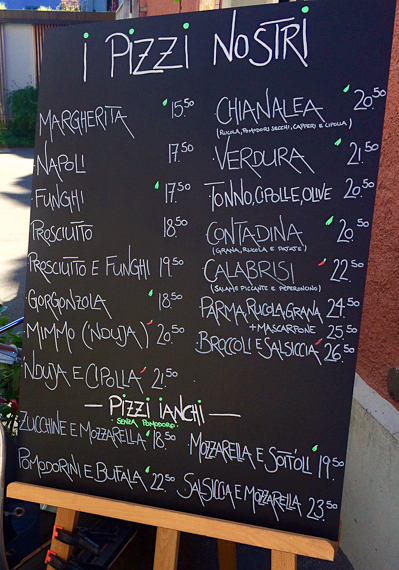 i Pizzi NOSTRi
MARGHERITA 15.50
NAPOLI 17.50
FUNGHI 17.50
PROSCIUTTO 18.50
PROSCIUTTO E FUNGHI 19.50
GORGONZOLA 18.50
MIMMO (NDUJA) 20.50
NDUJA E CIPOLLA 21.50
CHIANALEA 20.50
(RUCOLA, POMODORI SECCHI, CAPPERI E CIPOLLA)
VERDURA 21.50
TONNO, CIPOLLE, OLIVE 20.50
CONTADINA 20.50
(GRANA, RUCOLA E PATATE)
CALABRISI 22.50
(SALAME PICCANTE E PEPERONCINO)
PARMA, RUCOLA, GRANA 24.50
+ MASCARPONE 25.50
BROCCOLI E SALSICCIA 26.50
— PiZZi iANCHi —
SENZA POMODORO
ZUCCHINE E MOZZARELLA 18.50
POMODORINI E BUFALA 22.50
MOZZARELLA E SOTT'OLI 19.50
SALSICCIA E MOZZARELLA 23.50